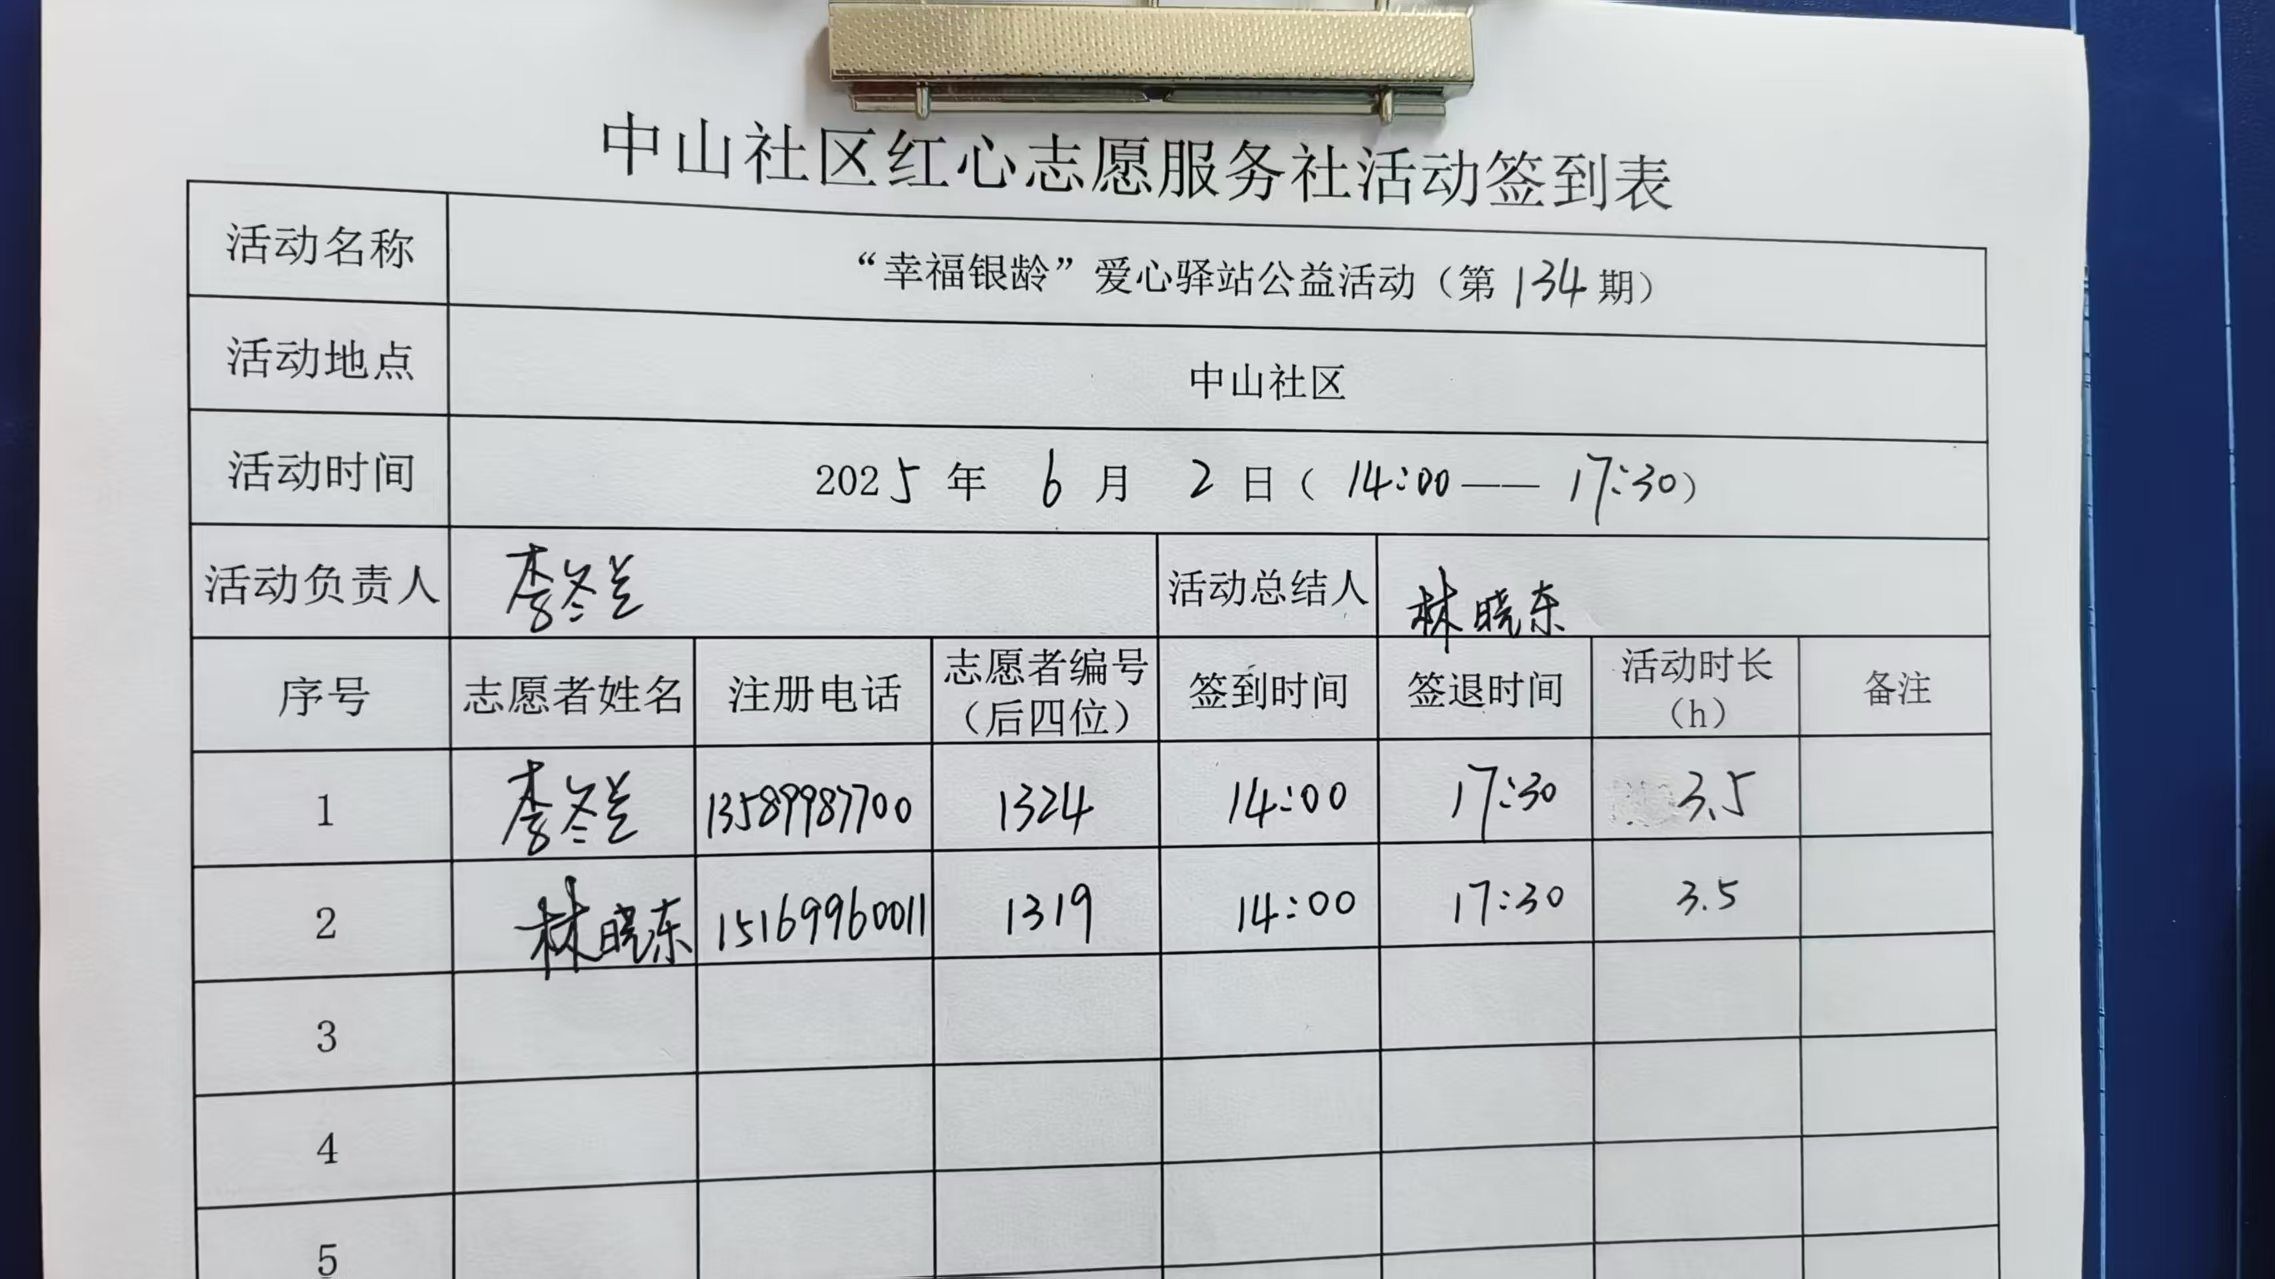 中山社区红心志愿服务社活动签到表
活动名称 “幸福银龄”爱心驿站公益活动（第134期）
活动地点 中山社区
活动时间 2025年6月2日（14:00——17:30）
活动负责人 李冬兰 活动总结人 林晓东
序号 志愿者姓名 注册电话 志愿者编号（后四位） 签到时间 签退时间 活动时长（h） 备注
1 李冬兰 13589987700 1324 14:00 17:30 3.5
2 林晓东 15169960011 1319 14:00 17:30 3.5
3
4
5